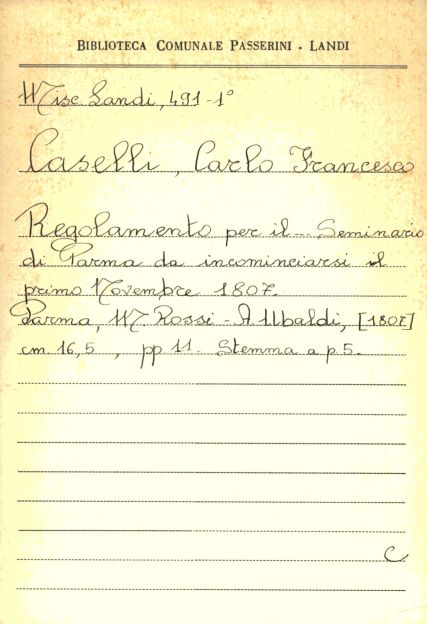 BIBLIOTECA COMUNALE PASSERINI - LANDI
Misc Landi, 491-1°
Caselli, Carlo Francesco
Regolamento per il ... Seminario
di Parma da incominciarsi il
primo Novembre 1807.
Parma, M. Rossi - A. Ubaldi, [1807]
cm. 16,5 , pp 11. Stemma a p 5.
C